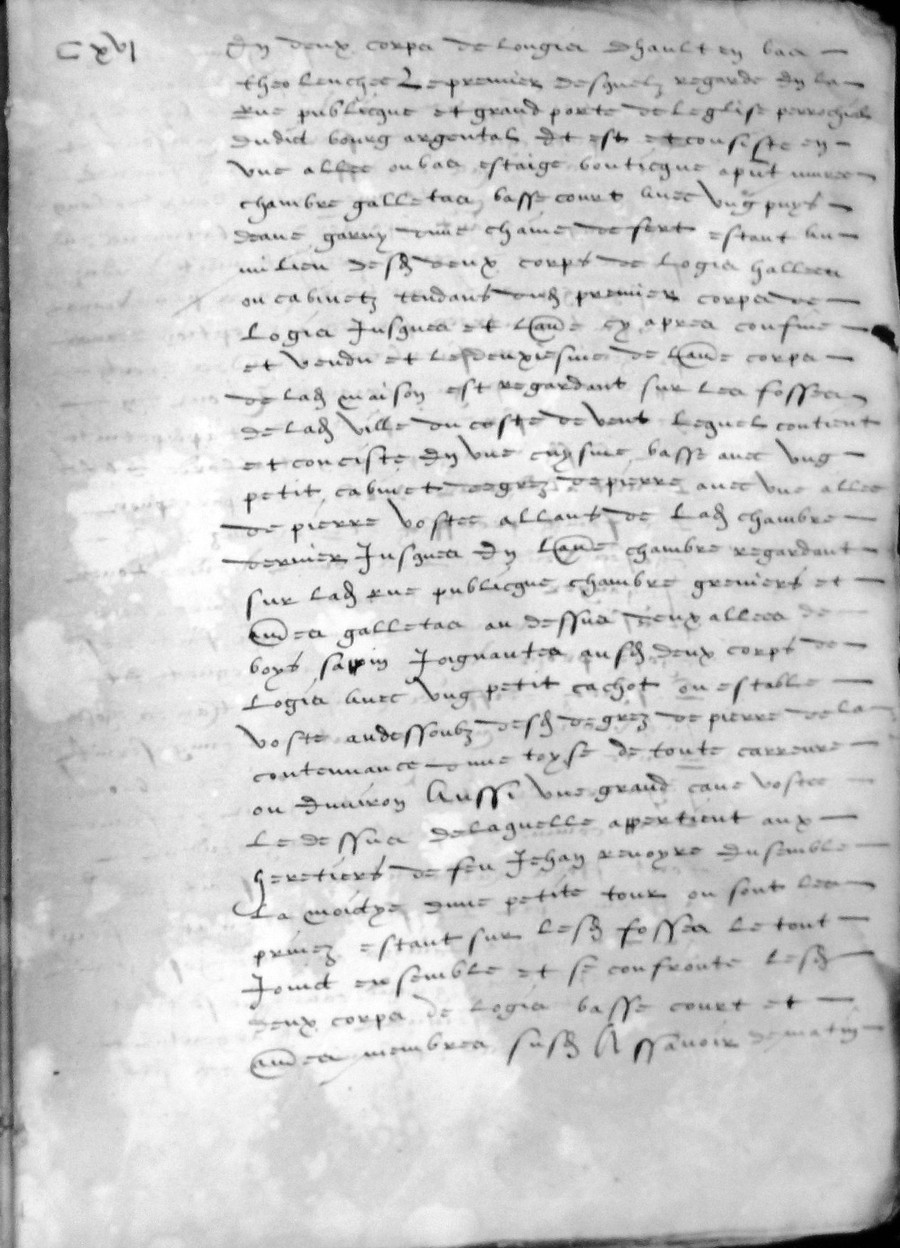 CXVI
En deux corps de longis dhault en bas
le premier desquelz regarde en la
Rue publicque et grand porte de leglise perrochial
dudict bourg argental Et est et consiste en
une allee ou bas estaige bouticque apnt muree
chambre galletas basse court avec ung puys
deaue garny dune chaine de fert estant au
milieu desd deux corps de logis hallees
ou cabinetz tendant dud premier corps de
Logis Jusques et laue cy apres confine
et vendu et le deuxiesme de laue corps
de lad maison est regardant sur les fosses
de lad ville du coste de vent lequel contient
et conciste En une cuysine basse avec ung
petit cabinet degrez de pierre avec une allee
de pierre vostee allant de lad chambre
dernier Jusques En laue chambre regardant
sur lad Rue publicque chambre greniers et
aues galletas au dessus deux allees de
boys sapin Joignantes ausd deux corps de
Logis avec ung petit cachot ou estable
voste audessoubz desd degrez de pierre de la
contenance dune toyse de toute carreure
ou Environ Aussi une grand cave vostee
Le dessus de laquelle appertient aux
heretiers de feu Jehan renoyre Ensemble
La moictye dune petite tour ou sont les
privez estant sur lesd fosses le tout
Joinct ensemble et se confronte lesd
deux corps de logis basse court et
aues membres susd Assavoir de matin